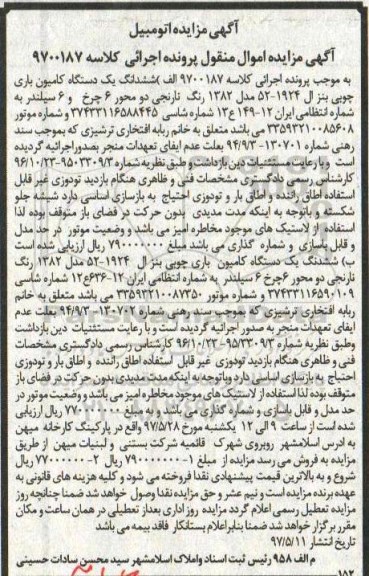 آگهی مزایده اتومبیل
آگهی مزایده اموال منقول پرونده اجرائی کلاسه ۹۷۰۰۱۸۷
به موجب پرونده اجرائی کلاسه ۹۷۰۰۱۸۷ الف )ششدانگ یک دستگاه کامیون باری
چوبی بنز ال ۱۹۲۴-۵۲ مدل ۱۳۸۲ رنگ نارنجی دو محور ۶ چرخ و ۶ سیلندر به
شماره انتظامی ایران ۱۲-۱۴۹ع۱۳ شماره شاسی ۳۷۴۳۳۱۱۶۵۸۸۴۴۵ و شماره موتور
۳۳۵۹۳۲۱۰۰۸۵۶۰۸ می باشد متعلق به خانم ربابه افتخاری ترشیزی که بموجب سند
رهنی شماره ۱۳۰۷۰۱-۹۴/۹/۳ بعلت عدم ایفای تعهدات منجر بصدوراجرائیه گردیده
است و با رعایت مستثنیات دین بازداشت و طبق نظریه شماره ۹۵۰۳۳۰۹/۳-۹۶/۱۰/۲۳
کارشناس رسمی دادگستری مشخصات فنی و ظاهری هنگام بازدید تودوزی غیر قابل
استفاده اطاق راننده و اطاق بار و تودوزی احتیاج به بازسازی اساسی دارد شیشه جلو
شکسته و باتوجه به اینکه مدت مدیدی بدون حرکت در فضای باز متوقف بوده لذا
استفاده از لاستیک های موجود مخاطره امیز می باشد و وضعیت موتور در حد مدل
و قابل بازسازی و شماره گذاری می باشد مبلغ ۷۹۰۰۰۰۰۰۰ ریال ارزیابی شده است
ب) ششدنگ یک دستگاه کامیون باری چوبی بنز ال ۱۹۲۴-۵۲ مدل ۱۳۸۲ رنگ
نارنجی دو محور ۶چرخ ۶ سیلندر به شماره انتظامی ایران ۱۲-۶۳۶ع۱۲ شماره شاسی
۳۷۴۳۳۱۱۶۵۹۰۱۰۹ و شماره موتور ۳۳۵۹۳۲۱۰۰۸۷۳۵۰ می باشد متعلق به خانم
ربابه افتخاری ترشیزی که بموجب سند رهنی شماره ۱۳۰۷۰۲-۹۴/۹/۳ بعلت عدم
ایفای تعهدات منجر به صدور اجرائیه گردیده است و با رعایت مستثنیات دین بازداشت
وطبق نظریه شماره ۹۵/۳۳۰۹/۳-۹۶/۱۰/۲۳ کارشناس رسمی دادگستری مشخصات
فنی و ظاهری هنگام بازدید تودوزی غیر قابل استفاده اطاق راننده و اطاق بار و تودوزی
احتیاج به بازسازی اساسی دارد وباتوجه به اینکه مدت مدیدی بدون حرکت در فضای باز
متوقف بوده لذا استفاده از لاستیک های موجود مخاطره امیز می باشد و وضعیت موتور در
حد مدل و قابل بازسازی و شماره گذاری می باشد و به مبلغ ۷۷۰۰۰۰۰۰۰ ریال ارزیابی
شده است از ساعت ۹ الی ۱۲ یکشنبه مورخ ۹۷/۵/۲۸ واقع در پارکینگ کارخانه میهن
به ادرس اسلامشهر روبروی شهرک قائمیه شرکت بستنی و لبنیات میهن از طریق
مزایده به فروش می رسد مزایده از مبلغ ۱-۷۹۰۰۰۰۰۰۰ ریال ۲-۷۷۰۰۰۰۰۰۰ ریال
شروع و به بالاترین قیمت پیشنهادی نقدا فروخته می شود و کلیه هزینه های قانونی به
عهده برنده مزایده است و نیم عشر و حق مزایده نقدا وصول خواهد شد ضمنا چنانچه روز
مزایده تعطیل رسمی اعلام گردد مزایده روز اداری بعداز تعطیلی در همان ساعت و مکان
مقرر برگزار خواهد شد ضمنا بنابراعلام بستانکار فاقد بیمه می باشد
تاریخ انتشار ۹۷/۵/۱۱
م الف ۹۵۸ رئیس ثبت اسناد واملاک اسلامشهر سید محسن سادات حسینی
۱۸۲